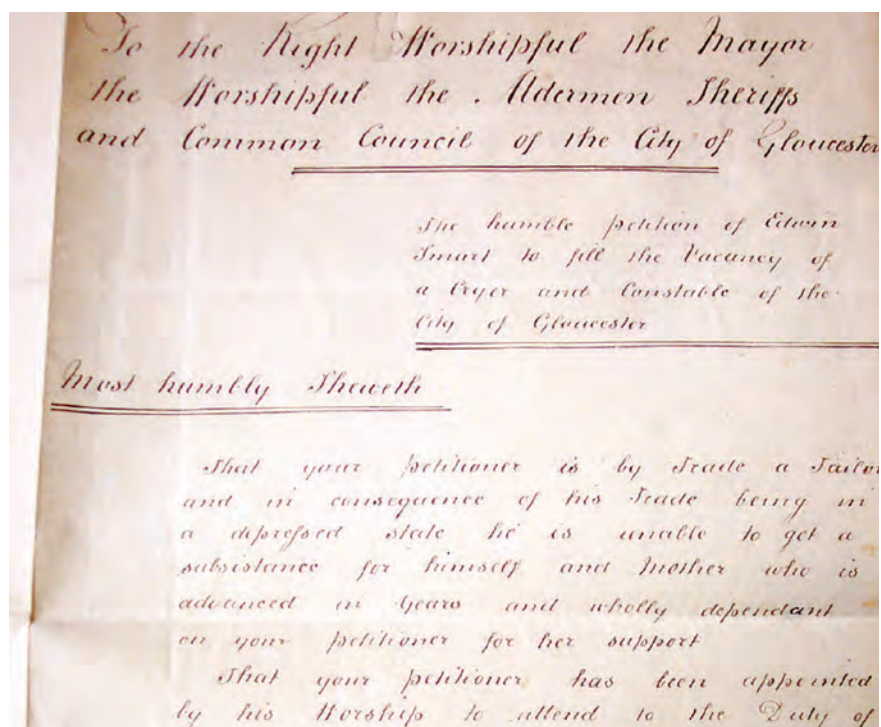 To the Right Worshipful the Mayor
the Worshipful the Aldermen Sheriffs
and Common Council of the City of Gloucester
The humble petition of Edwin
Smart to fill the Vacancy of
a Cryer and Constable of the
City of Gloucester
Most humbly Sheweth
That your petitioner is by Trade a Tailor
and in consequence of his Trade being in
a depressed state he is unable to get a
subsistance for himself and Mother who is
advanced in Years and wholly dependant
on your petitioner for her support
That your petitioner has been appointed
by his Worship to attend to the Duty of